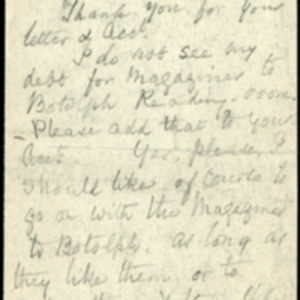 Thank you for your
letter & Acct.
I do not see my
debt for Magazines to
Botolph Reading-room.
- Please add that to your
Acct. Yes, please, I
should like of course to
go on with the Magazines
to Botolph. As long as
they like them, or to